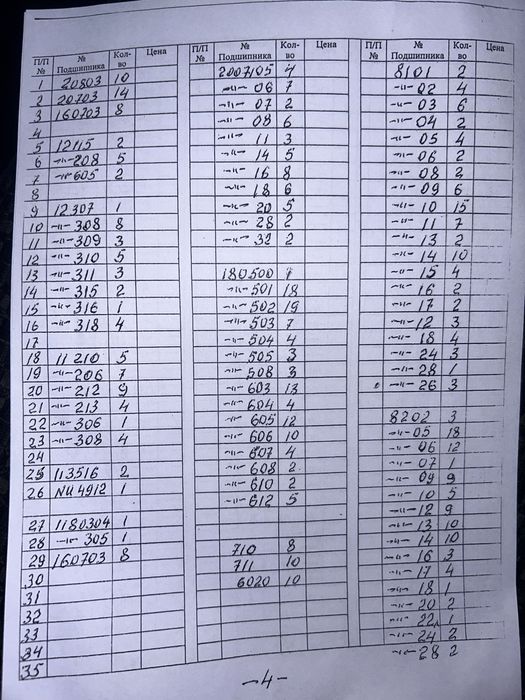 П/П № № Подшипника Кол-во Цена
1 20803 10
2 20703 14
3 160703 8
4
5 12115 2
6 -"- 208 5
7 -"- 605 2
8
9 12307 1
10 -"- 308 8
11 -"- 309 3
12 -"- 310 5
13 -"- 311 3
14 -"- 315 2
15 -"- 316 1
16 -"- 318 4
17
18 11210 5
19 -"- 206 7
20 -"- 212 9
21 -"- 213 4
22 -"- 306 1
23 -"- 308 4
24
25 113516 2
26 NU 4912 1
27 1180304 1
28 -"- 305 1
29 160703 8
30
31
32
33
34
35
П/П № № Подшипника Кол-во Цена
2007105 4
-"- 06 7
-"- 07 2
-"- 08 6
-"- 11 3
-"- 14 5
-"- 16 8
-"- 18 6
-"- 20 5
-"- 28 2
-"- 32 2
180500 1
-"- 501 18
-"- 502 19
-"- 503 7
-"- 504 4
-"- 505 3
-"- 508 3
-"- 603 13
-"- 604 4
-"- 605 12
-"- 606 10
-"- 607 4
-"- 608 2
-"- 610 2
-"- 612 5
710 8
711 10
6020 10
П/П № № Подшипника Кол-во Цена
8101 2
-"- 02 4
-"- 03 6
-"- 04 2
-"- 05 4
-"- 06 2
-"- 08 2
-"- 09 6
-"- 10 15
-"- 11 7
-"- 13 2
-"- 14 10
-"- 15 4
-"- 16 2
-"- 17 2
-"- 12 3
-"- 18 4
-"- 24 3
-"- 28 1
-"- 26 3
8202 3
-"- 05 18
-"- 06 12
-"- 07 1
-"- 09 9
-"- 10 5
-"- 12 9
-"- 13 10
-"- 14 10
-"- 16 3
-"- 17 4
-"- 18 1
-"- 20 2
-"- 22 1
-"- 24 2
-"- 28 2
-4-